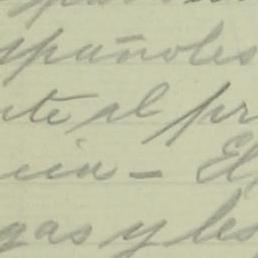 spañoles
nte al pr
cia - El
gas y les